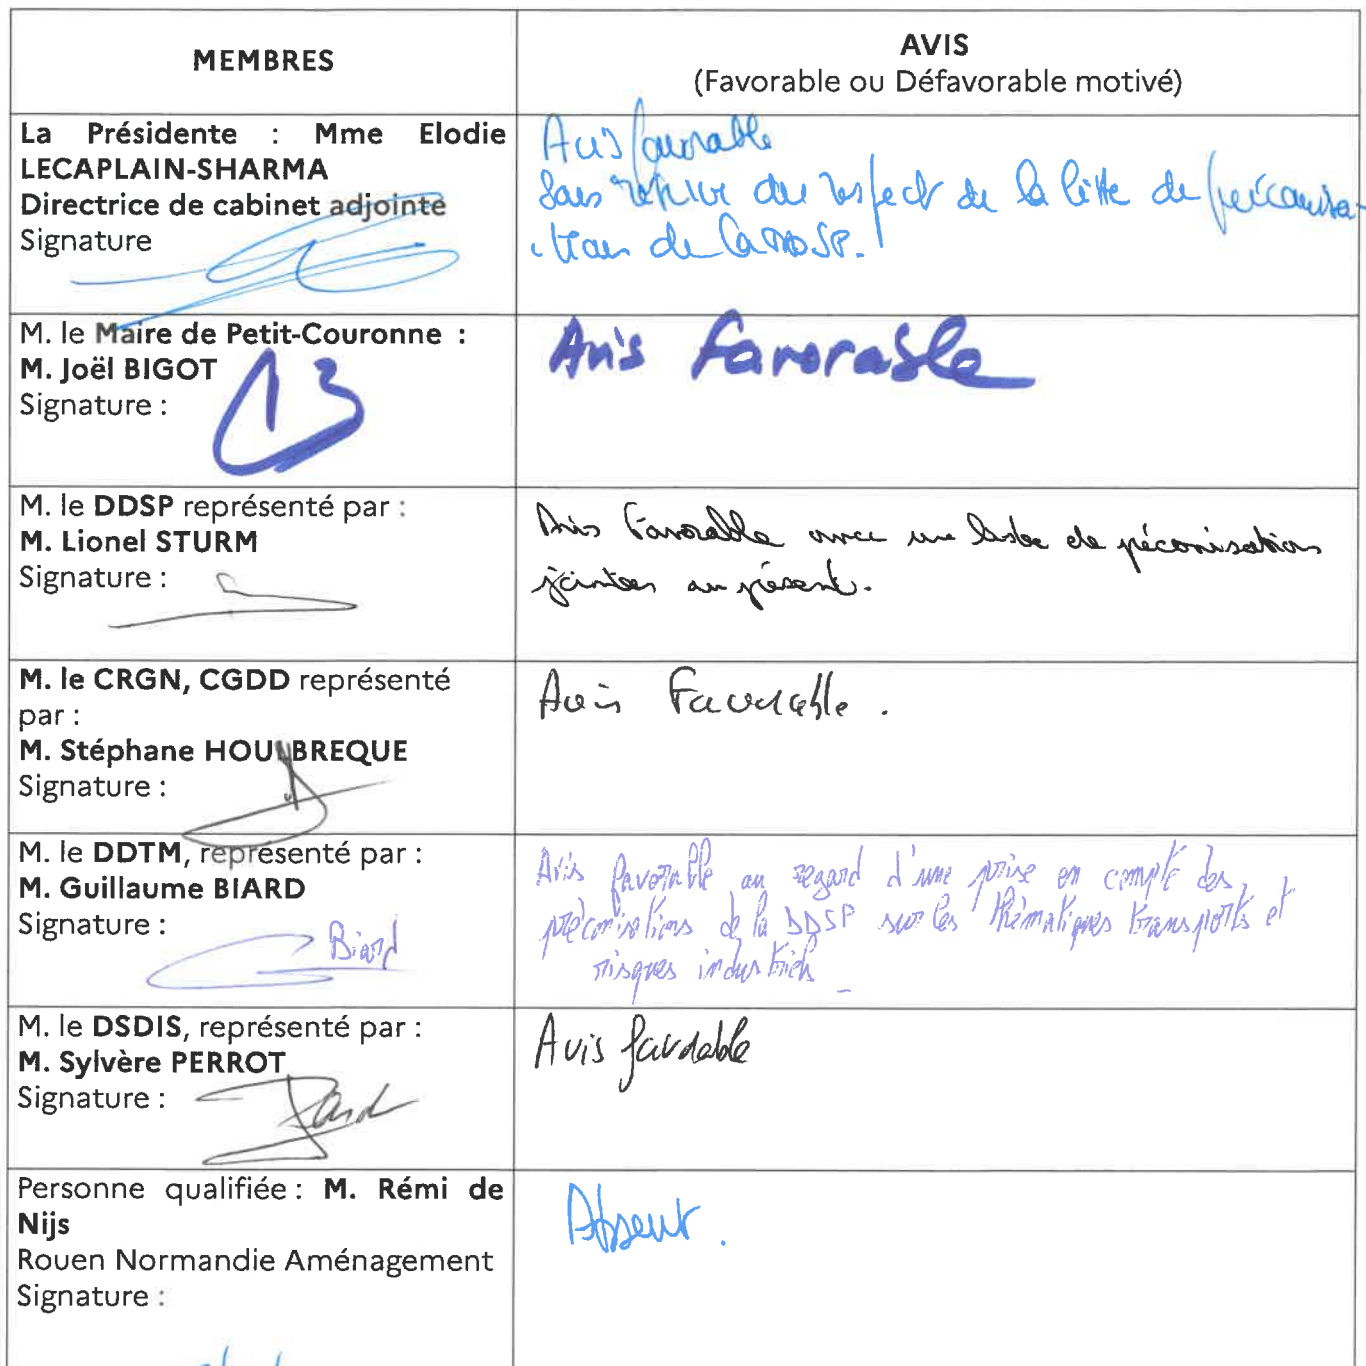 MEMBRES
AVIS
(Favorable ou Défavorable motivé)
La Présidente : Mme Elodie
LECAPLAIN-SHARMA
Directrice de cabinet adjointe
Signature
Avis favorable
Sous réserve du respect de la liste de préconisa-
-tions de la DDSP.
M. le Maire de Petit-Couronne :
M. Joël BIGOT
Signature :
Avis favorable
M. le DDSP représenté par :
M. Lionel STURM
Signature :
Avis Favorable avec une liste de préconisations
jointes au présent.
M. le CRGN, CGDD représenté
par :
M. Stéphane HOULBREQUE
Signature :
Avis Favorable.
M. le DDTM, représenté par :
M. Guillaume BIARD
Signature :
Biard
Avis favorable au regard d'une prise en compte des
préconisations de la DDSP sur les thématiques transports et
risques industriels
M. le DSDIS, représenté par :
M. Sylvère PERROT
Signature :
Avis favorable
Personne qualifiée : M. Rémi de
Nijs
Rouen Normandie Aménagement
Signature :
Absent.